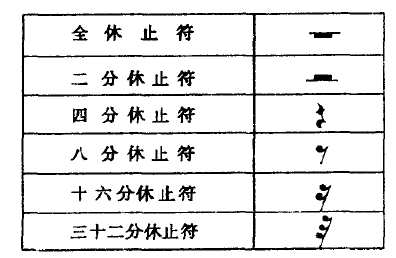 全休止符
二分休止符
四分休止符
八分休止符
十六分休止符
三十二分休止符